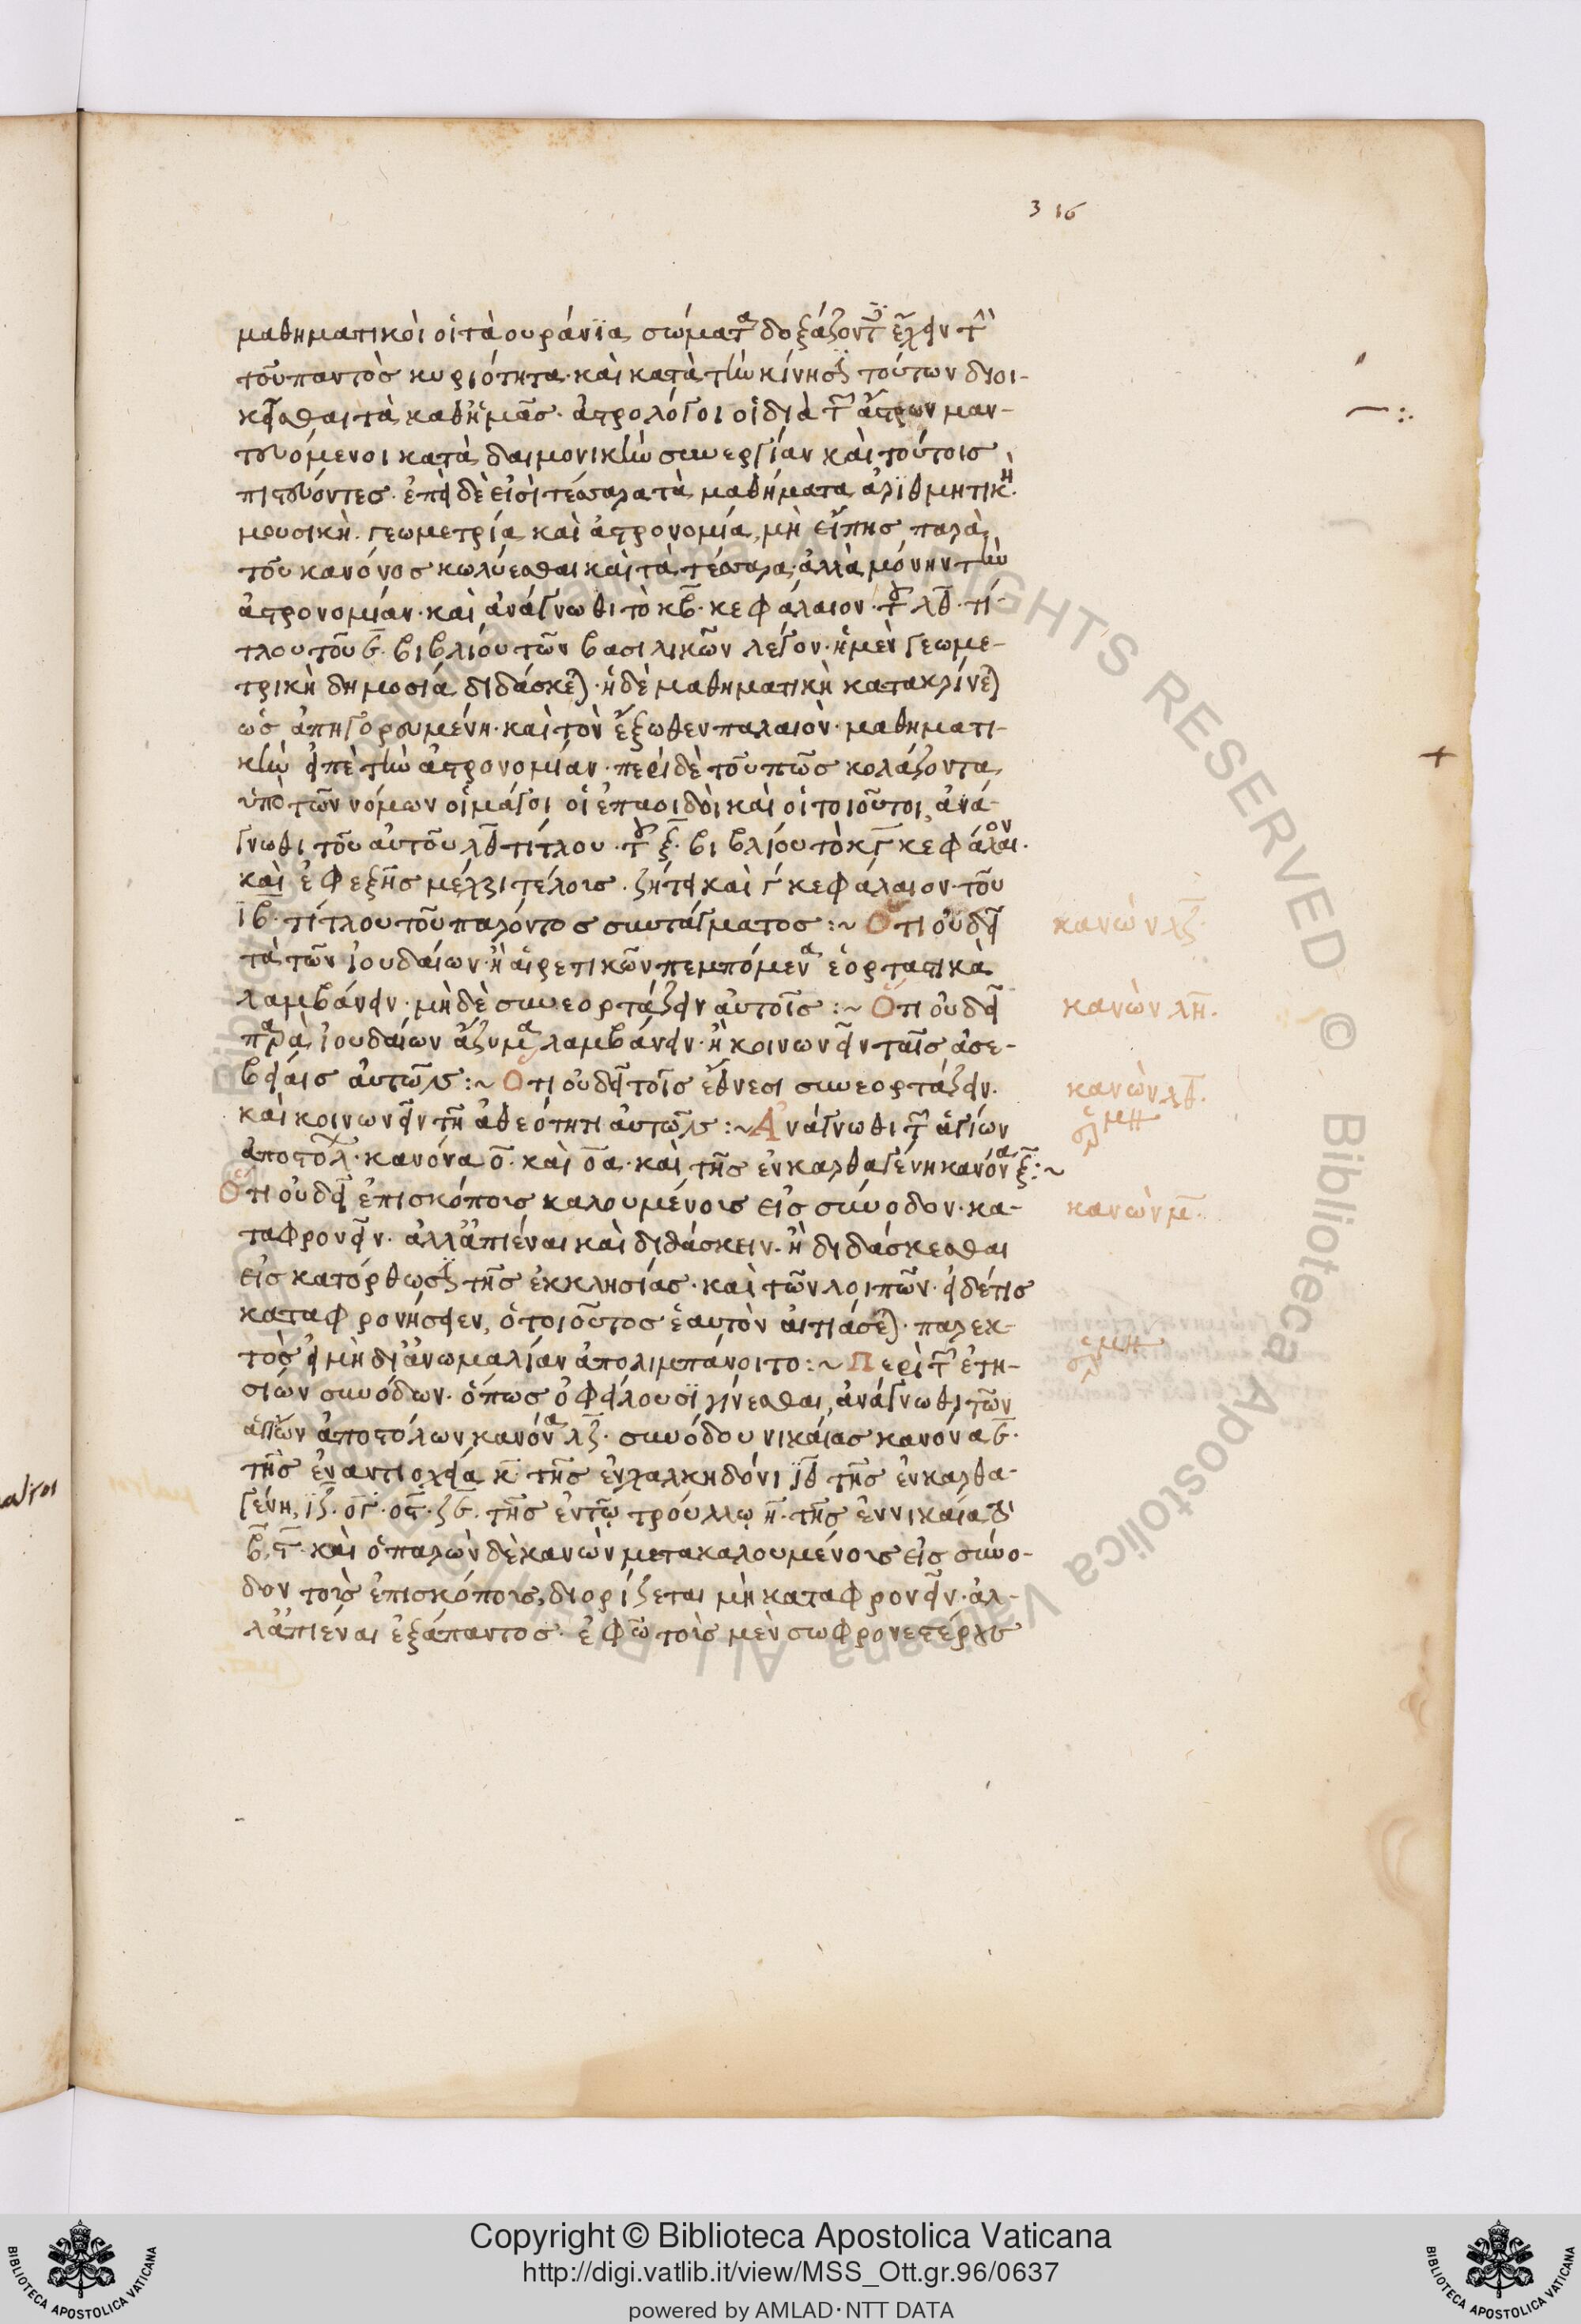 316
μαθηματικοὶ οἱ τὰ ουράνϊα σώματα δοξάζοντες ἔχειν τὴν
τοῦ παντὸσ κυριότητα· καὶ κατὰ τὴν κίνησιν τούτων διοι-
κεῖσθαι τὰ καθἡμᾶσ· ἀστρολόγοι οἱ διὰ τῶν ἄστρων μαν-
τευόμενοι κατὰ δαιμονικὴν συνεργίαν καὶ τούτοισ
πιστεύοντεσ· ἐπεὶ δὲ εἰσὶ τέσσαρα τὰ μαθήματα ἀρϊθμητικὴ·
μουσικὴ· γεωμετρία καὶ ἀστρονομία, μὴ εἴπησ παρὰ
τοῦ κανόνοσ κωλύεσθαι καὶ τὰ τέσσαρα· ἀλλὰ μόνην τὴν
ἀστρονομίαν· καὶ ἀνάγνωθι τὸ κβ· κεφάλαιον· τοῦ λθ· τί-
τλου τοῦ ϛ· βιβλίου τῶν βασιλικῶν λεγον· ἡ μὲν γεωμε-
τρικὴ δημοσία διδάσκεται· ἡ δὲ μαθηματικὴ κατακρίνεται
ὡσ ἀπηγορευμένη· καὶ τὸν ἔξωθεν παλαιὸν· μαθηματι-
κὴν εἶπὲ τὴν ἀστρονομίαν· περὶ δὲ τοῦ πῶσ κολάζονται
ὑπὸ τῶν νόμων οἱ μάγοι οἱ ἐπαοιδοὶ καὶ οἱ τοιοῦτοι, ἀνά-
γνωθι τοῦ αὐτοῦ λθ τίτλου· τοῦ ξ· βιβλίου τὸ κγ κεφάλαιον·
καὶ ἐφεξῆσ μέχρι τέλουσ· ζήτει καὶ γ κεφάλαιον· τοῦ
ϊβ· τίτλου τοῦ παρόντοσ συντάγματοσ :~ Ὅτι οὐ δεῖ
τὰ τῶν ἰουδαίων· ἢ αἱρετικῶν πεμπόμενα ἑορταστικὰ
λαμβάνειν· μὴδὲ συνεορτάζειν αὐτοῖσ :~ Ὅτι οὐ δεῖ
παρὰ ἰουδαίων ἄζυμα λαμβάνειν· ἢ κοινωνεῖν ταῖσ ἀσε-
βείαισ αὐτῶν :~ Ὅτι οὐ δεῖ τοῖσ ἔθνεσι συνεορτάζειν·
καὶ κοινωνεῖν τῆ ἀθεότητι αὐτῶν :~ Ἀνάγνωθι τῶν ἁγίων
ἀποστόλ· κανόνα ο· καὶ οα· καὶ τῆσ ἐν καρθαγένη κανόνα ξ :~
Ὅτι οὐ δεῖ ἐπισκόπουσ καλουμένουσ εἰσ σύνοδον· κα-
ταφρονεῖν· ἀλλἀπιέναι καὶ διδάσκειν· ἢ διδάσκεσθαι
εἰσ κατόρθωσιν τῆσ ἐκκλησίασ· καὶ τῶν λοιπῶν· εἰ δέ τισ
καταφρονήσειεν, ὁ τοιοῦτοσ ἑαυτὸν αἰτιάσεται· παρεκ-
τὸσ εἰ μὴ διἀνωμαλίαν ἀπολιμπάνοιτο :~ Περὶ τῶν ἐτη-
σιών συνόδων· ὅπωσ ὀφείλουσϊ γίνεσθαι, ἀνάγνωθι τῶν
ἁγίων ἀποστόλων κανόνα λζ· συνόδου νικαίασ κανόνα ϛ·
τῆσ ἐν αντιοχεία κ τῆσ ἐν χαλκηδόνι ϊθ τῆσ ἐν καρθα-
γένη, ϊζ· ογ· οϛ· ζϛ· τῆσ ἐν τῷ τρούλλῳ η· τῆσ ἐν νικαία
καὶ ὁ παρὼν δὲ κανὼν μετακαλουμένουσ εἰσ σύνο-
δον τοὺσ ἐπισκόπουσ, διορίζεται μὴ καταφρονεῖν· ἀλ-
λἀπιέναι ἐξάπαντοσ· ἐφῶ τοὺσ μὲν σωφρονεστέρουσ
κανὼν λζ·
κανὼν λη·
κανὼν λθ·
κανὼν μ·
Copyright © Biblioteca Apostolica Vaticana
http://digi.vatlib.it/view/MSS_Ott.gr.96/0637
powered by AMLAD·NTT DATA
BIBLIOTECA APOSTOLICA VATICANA
BIBLIOTECA APOSTOLICA VATICANA